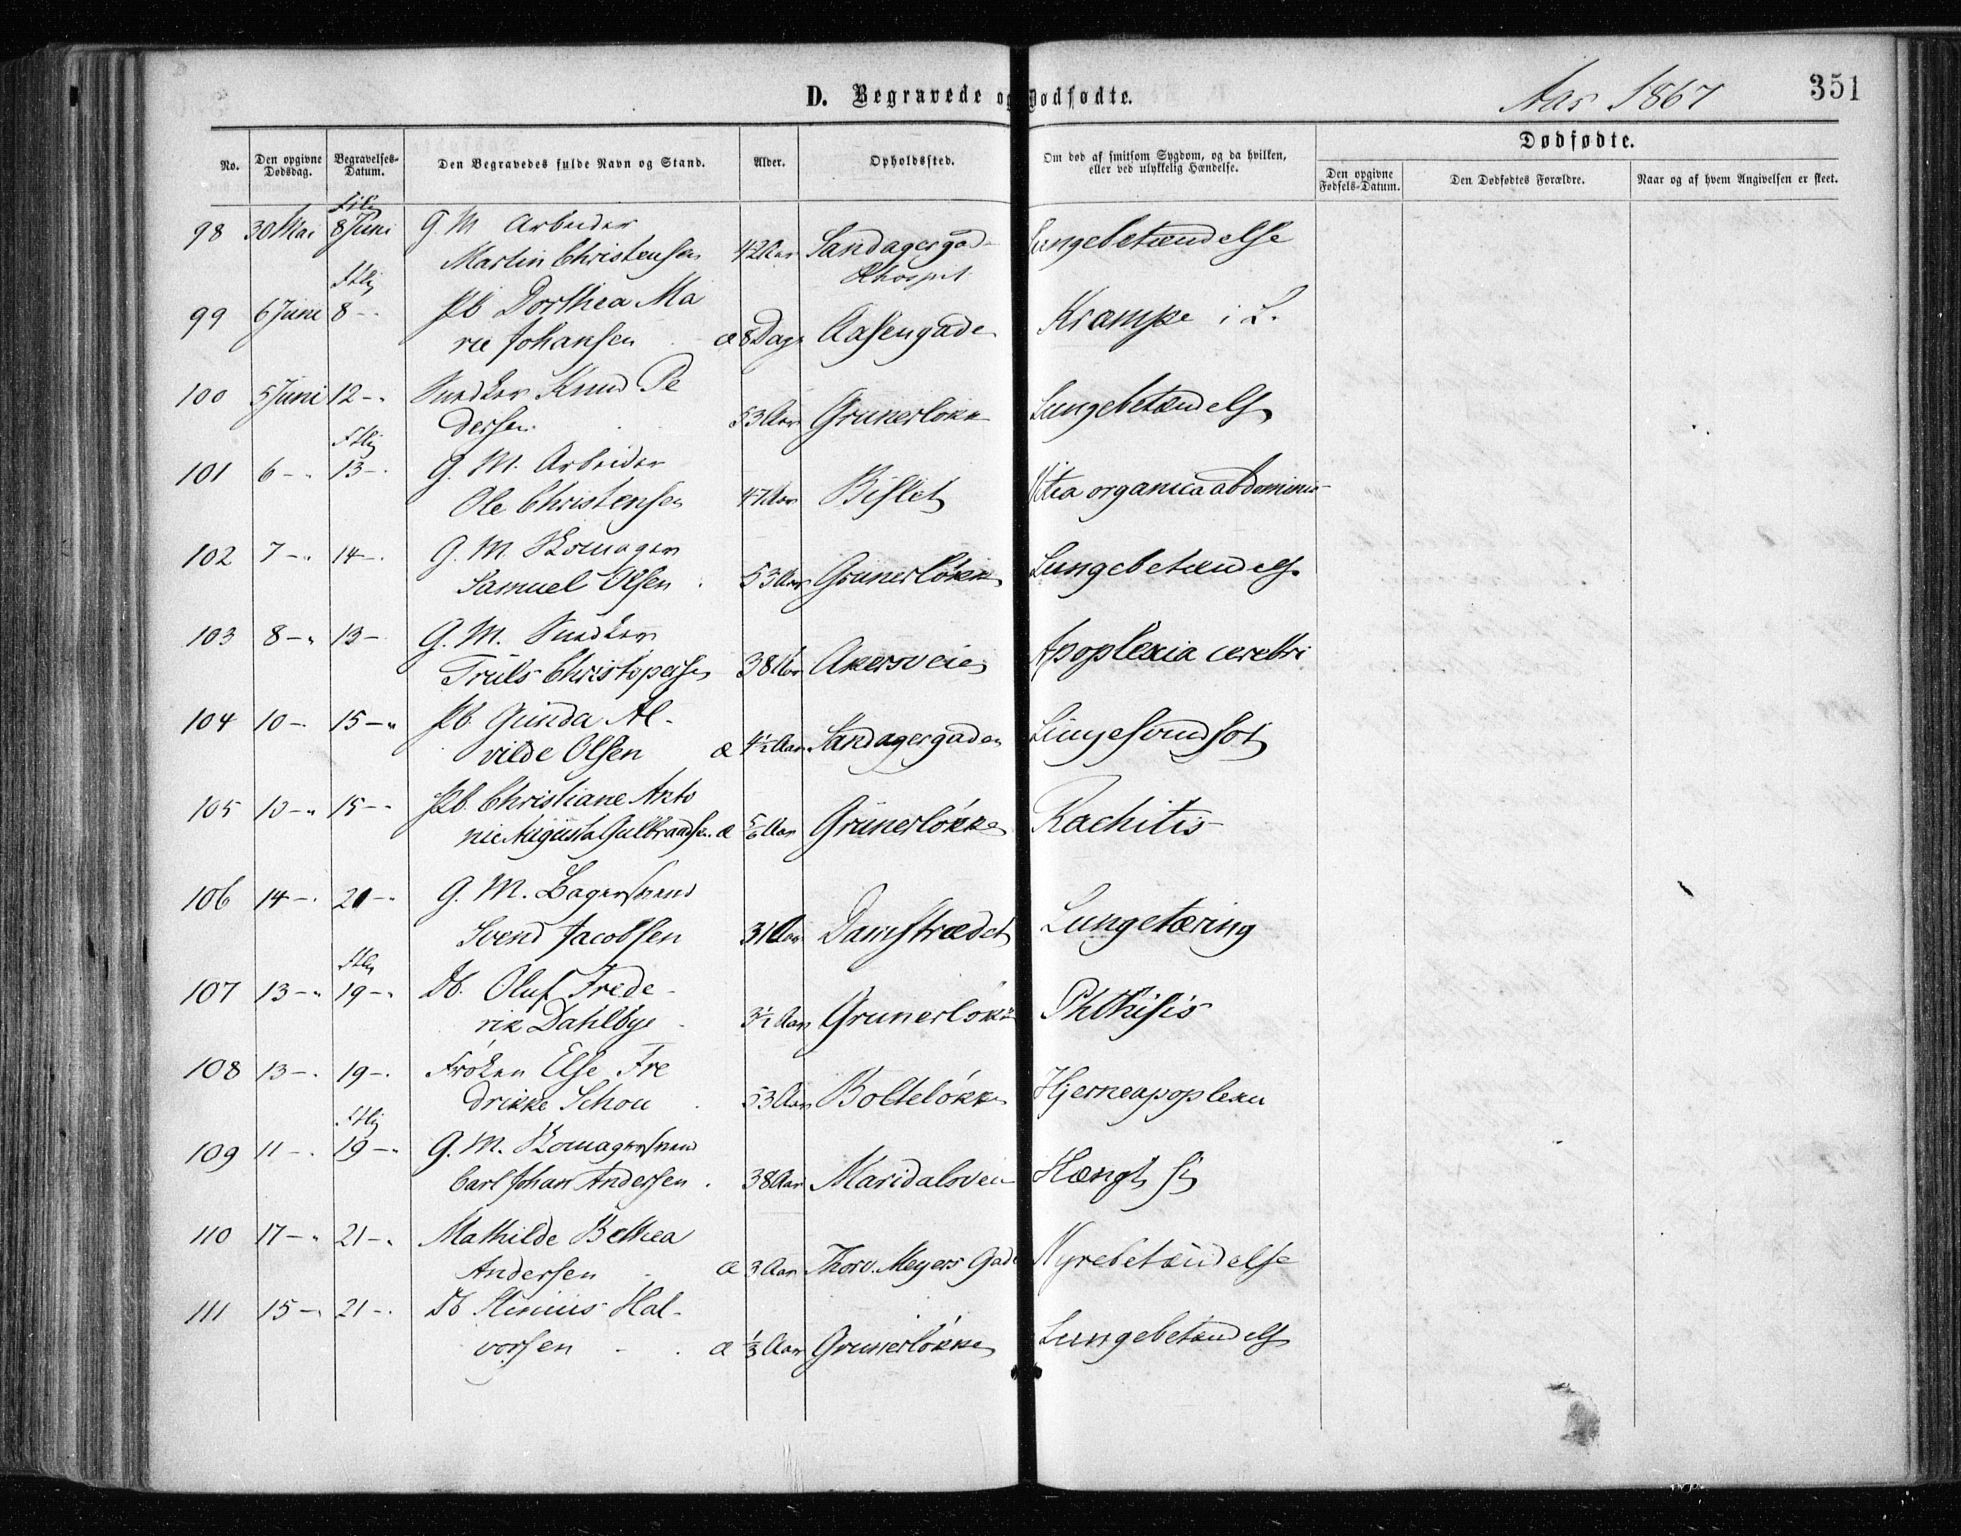 D. Begravede og Dødfødte.
Aar 1867
351
No.
Den opgivne Dødsdag.
Begravelses-Datum.
Den Begravedes fulde Navn og Stand.
Alder.
Opholdssted.
Om død af smitsom Sygdom, og da hvilken, eller ved ulykkelig Hændelse.
Dødfødte.
Den opgivne Fødsels-Datum.
Den Dødfødtes Forældre.
Naar og af hvem Angivelsen er skeet.
98 30 Mai 8 Juni G. M. Arbeider
Martin Christensen 42 Aar Sandagergad Lungebetændelse
99 6 Juni 8 - Pb Dorthea Ma
rie Johansen æ 8 Dage Aasengaden Krampe i L.
100 5 Juni 12 - Snedker Knud Pe
dersen 53 Aar Grünerløkk Lungebetændelse
101 6 - 13 - G. M. Arbeider
Ole Christensen 47 Aar Bislet Vitia organica abdominis
102 7 - 14 - G. M. Skomager
Samuel Olsen 53 Aar Grünerløkk Lungebetændelse
103 8 - 13 - G. M. Snedker
Truls Christopersen 38 Aar Akersveien Apoplexia cerebri
104 10 - 15 - Pb. Gunda Al-
vilde Olsen æ 4½ Aar Sandagergaden
105 10 - 15 - Pb. Christiane Anto
nie Augusta Gulbrandsen æ 5/6 Aar Grünerløkken Rachitis
106 14 - 20 - G. M.
Svend Jacobsen 31 Aar Damstrædet Lungetæring
107 13 - 19 - Db. Oluf Frede-
rik Dahlbye 3½ Aar Grunerløkk Phthisis
108 13 - 19 - Frøken Else Fre
drikke Schou 53 Aar Bolteløkken Hjerneapoplexi
109 11 - 19 - G. M. Skomagersvend
Carl Johan Andersen 38 Aar Maridalsveien Hængt sig
110 17 - 21 - Mathilde Bethea
Andersen æ 3 Aar Thorv. Meyers Gade Nyrebetændelse
111 15 - 21 - Db Hal-
vorsen æ 1/3 Aar Grunerløkken Lungebetændelse